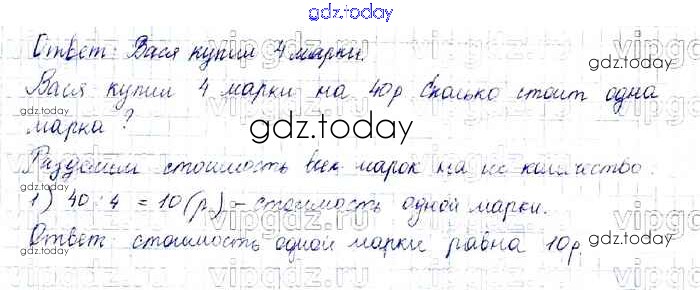 gdz.today
Ответ: Вася купил 4 марки.
Вася купил 4 марки на 40р. Сколько стоит одна
марка?
gdz.today
Разделим стоимость всех марок на их количество.
1) 40 : 4 = 10 (р.) – стоимость одной марки.
Ответ: стоимость одной марки равна 10р.